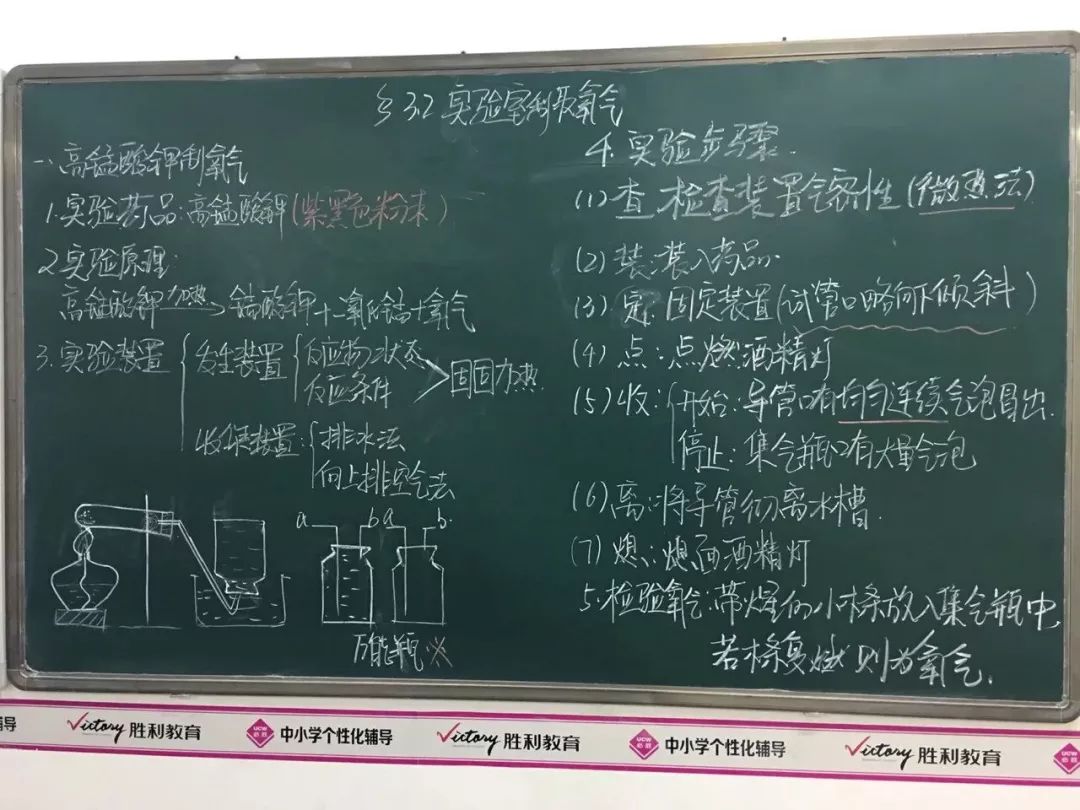 §3.2 实验室制取氧气
一、高锰酸钾制氧气
1.实验药品:高锰酸钾(紫黑色粉末)
2.实验原理:
高锰酸钾 加热→ 锰酸钾+二氧化锰+氧气
3.实验装置
发生装置
反应物状态
反应条件
固固加热
收集装置:
排水法
向上排空气法
a b a b
万能瓶※
4.实验步骤
(1)查:检查装置气密性(微热法)
(2)装:装入药品
(3)定:固定装置(试管口略向下倾斜)
(4)点:点燃酒精灯
(5)收:
开始:导管口有均匀连续气泡冒出
停止:集气瓶口有大量气泡
(6)离:将导管移离水槽
(7)熄:熄灭酒精灯
5.检验氧气:带火星的小木条放入集气瓶中
若木条复燃则为氧气.
辅导
Victory 胜利教育
UCW 必胜 中小学个性化辅导
Victory 胜利教育
UCW 必胜 中小学个性化辅导
Victory 胜利教育
UCW